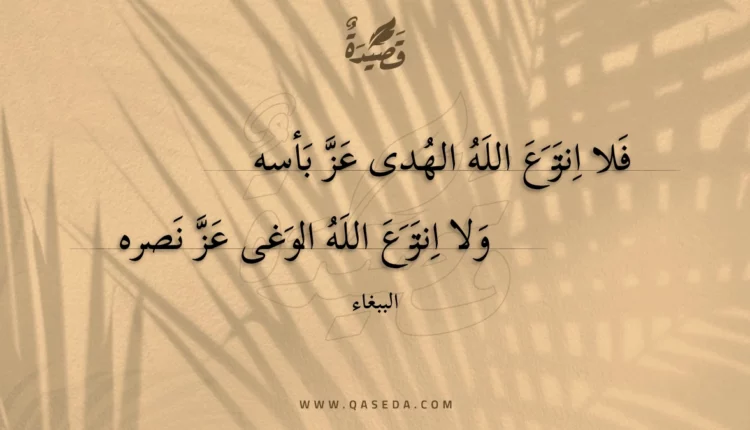 قَصِيْدَةٌ
فَلا اِنتَزَعَ اللَهُ الهُدى عَزَّ بَأسه
وَلا اِنتَزَعَ اللَهُ الوَغى عَزَّ نَصره
الببغاء
WWW.QASEDA.COM